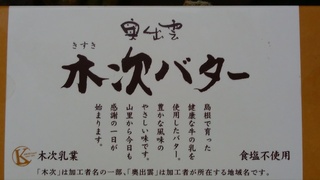 奥出雲
きすき
木次バター
島根で育った
健康な牛の乳を
使用したバター。
豊かな風味の
やさしい味です。
山里から今日も
感謝の一日が
始まります。
木次乳業
食塩不使用
「木次」は加工者名の一部、「奥出雲」は加工者が所在する地域名です。